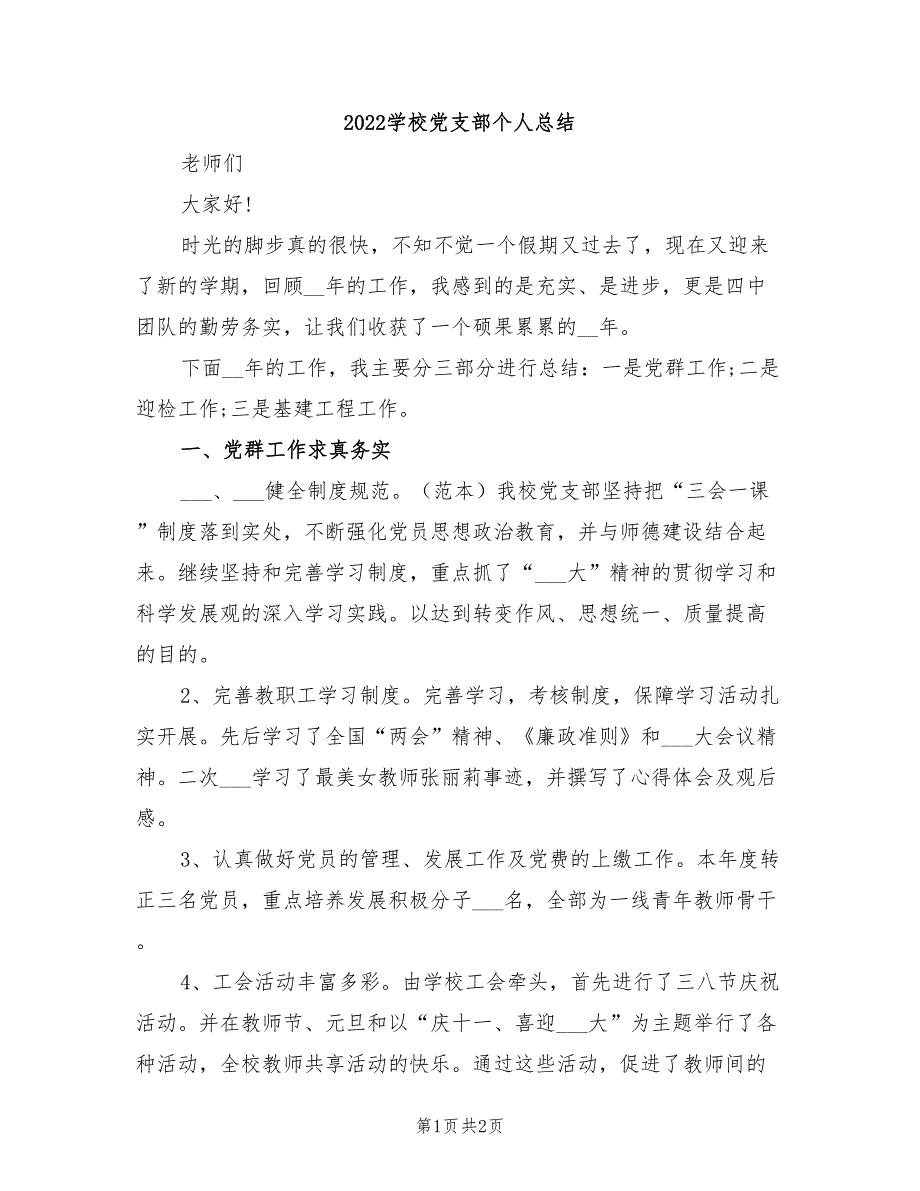 2022学校党支部个人总结
老师们
大家好!
时光的脚步真的很快，不知不觉一个假期又过去了，现在又迎来
了新的学期，回顾__年的工作，我感到的是充实、是进步，更是四中
团队的勤劳务实，让我们收获了一个硕果累累的__年。
下面__年的工作，我主要分三部分进行总结：一是党群工作;二是
迎检工作;三是基建工程工作。
一、党群工作求真务实
___、___健全制度规范。（范本）我校党支部坚持把“三会一课
”制度落到实处，不断强化党员思想政治教育，并与师德建设结合起
来。继续坚持和完善学习制度，重点抓了“___大”精神的贯彻学习和
科学发展观的深入学习实践。以达到转变作风、思想统一、质量提高
的目的。
2、完善教职工学习制度。完善学习，考核制度，保障学习活动扎
实开展。先后学习了全国“两会”精神、《廉政准则》和___大会议精
神。二次___学习了最美女教师张丽莉事迹，并撰写了心得体会及观后
感。
3、认真做好党员的管理、发展工作及党费的上缴工作。本年度转
正三名党员，重点培养发展积极分子___名，全部为一线青年教师骨干
。
4、工会活动丰富多彩。由学校工会牵头，首先进行了三八节庆祝
活动。并在教师节、元旦和以“庆十一、喜迎___大”为主题举行了各
种活动，全校教师共享活动的快乐。通过这些活动，促进了教师间的
第1页共2页